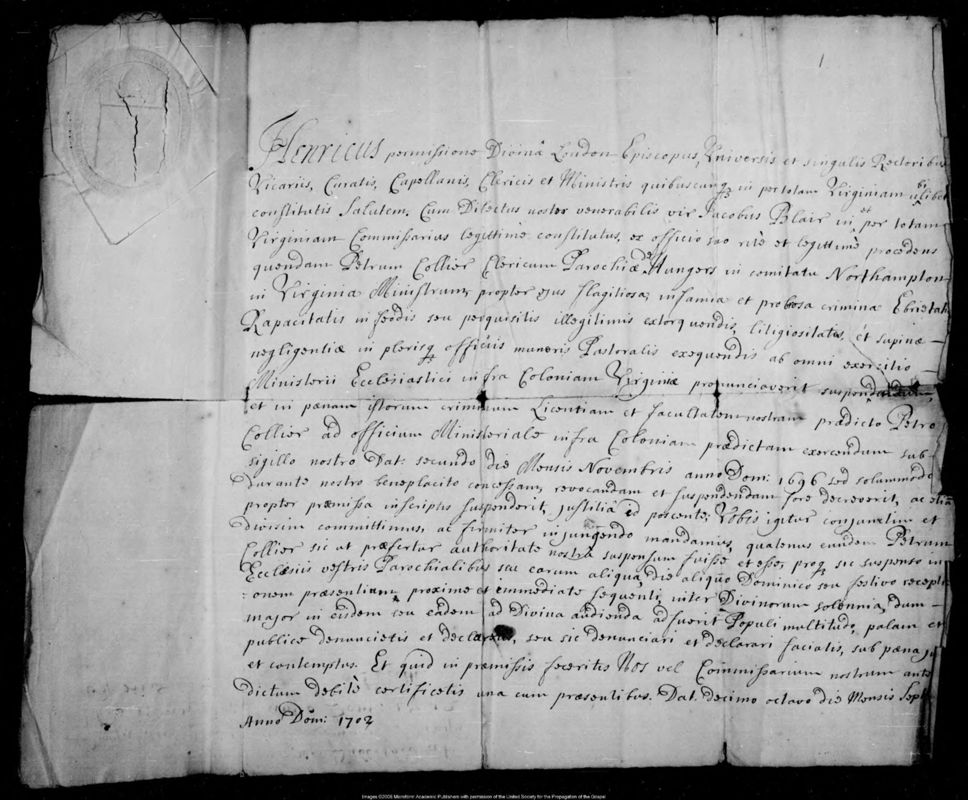 1
Henricus permissione Divinâ London Episcopus, Universis et singulis Rectoribus
Vicariis, Curatis, Capellanis, Clericis et Ministris quibuscunq; in per totam Virginiam ubilibet
constitutis Salutem. Cum Dilectus noster venerabilis vir Jacobus Blair in, et per totam
Virginiam Commissarius legitime constitutus, ex officio suo ritè et legittimè procedens
quendam Petrum Collier Clericum Parochiæ de Hungers in comitatu Northampton
in Virginia Ministrum, propter ejus flagitiosa, infamia et probosa crimina Ebrietatis
Rapacitatis in feodis seu perquisitis illegitimis extorquendis, litigiositatis, et supinæ
negligentiæ in plerisq; officiis muneris Pastoralis exequendis ab omni exercitio
Ministerii Ecclesiastici infra Coloniam Virginiæ pronunciaverit suspendendum,
et in pœnam istorum criminum Licentiam et facultatem nostram prædicto Petro
Collier ad officium Ministeriale infra Coloniam prædictam exercendum sub
sigillo nostro Dat: secundo die Mensis Novembris anno Dom: 1696 sed solummodo
durante nostro beneplacito concessam, revocandam et suspendendam fore decreverit, ac etiam
propter præmissa in scriptis suspenderit, justitiâ id poscente; Vobis igitur conjunctim et
divisim committimus, ac firmiter injungendo mandamus, quatenus eundem Petrum
Collier sic ut præfertur authoritate nostrâ suspensum fuisse et esse, proq; sic suspenso in
Ecclesiis vestris Parochialibus seu earum aliqua, die aliquo Dominico seu festivo recepti
:onem præsentium proxime et immediate sequenti, inter Divinorum solennia, dum
major in eisdem seu eadem ad Divina audienda adfuerit Populi multitudo, palam et
publice denuncietis et declaretis, seu sic denunciari et declarari faciatis, sub pœna juris
et contemptus. Et quid in præmissis feceritis Nos vel Commissarium nostrum ante
dictum debitè certificetis una cum præsentibus. Dat. decimo octavo die Mensis Sept
Anno Dom: 1702
Images ©2006 Microform Academic Publishers with permission of the United Society for the Propagation of the Gospel